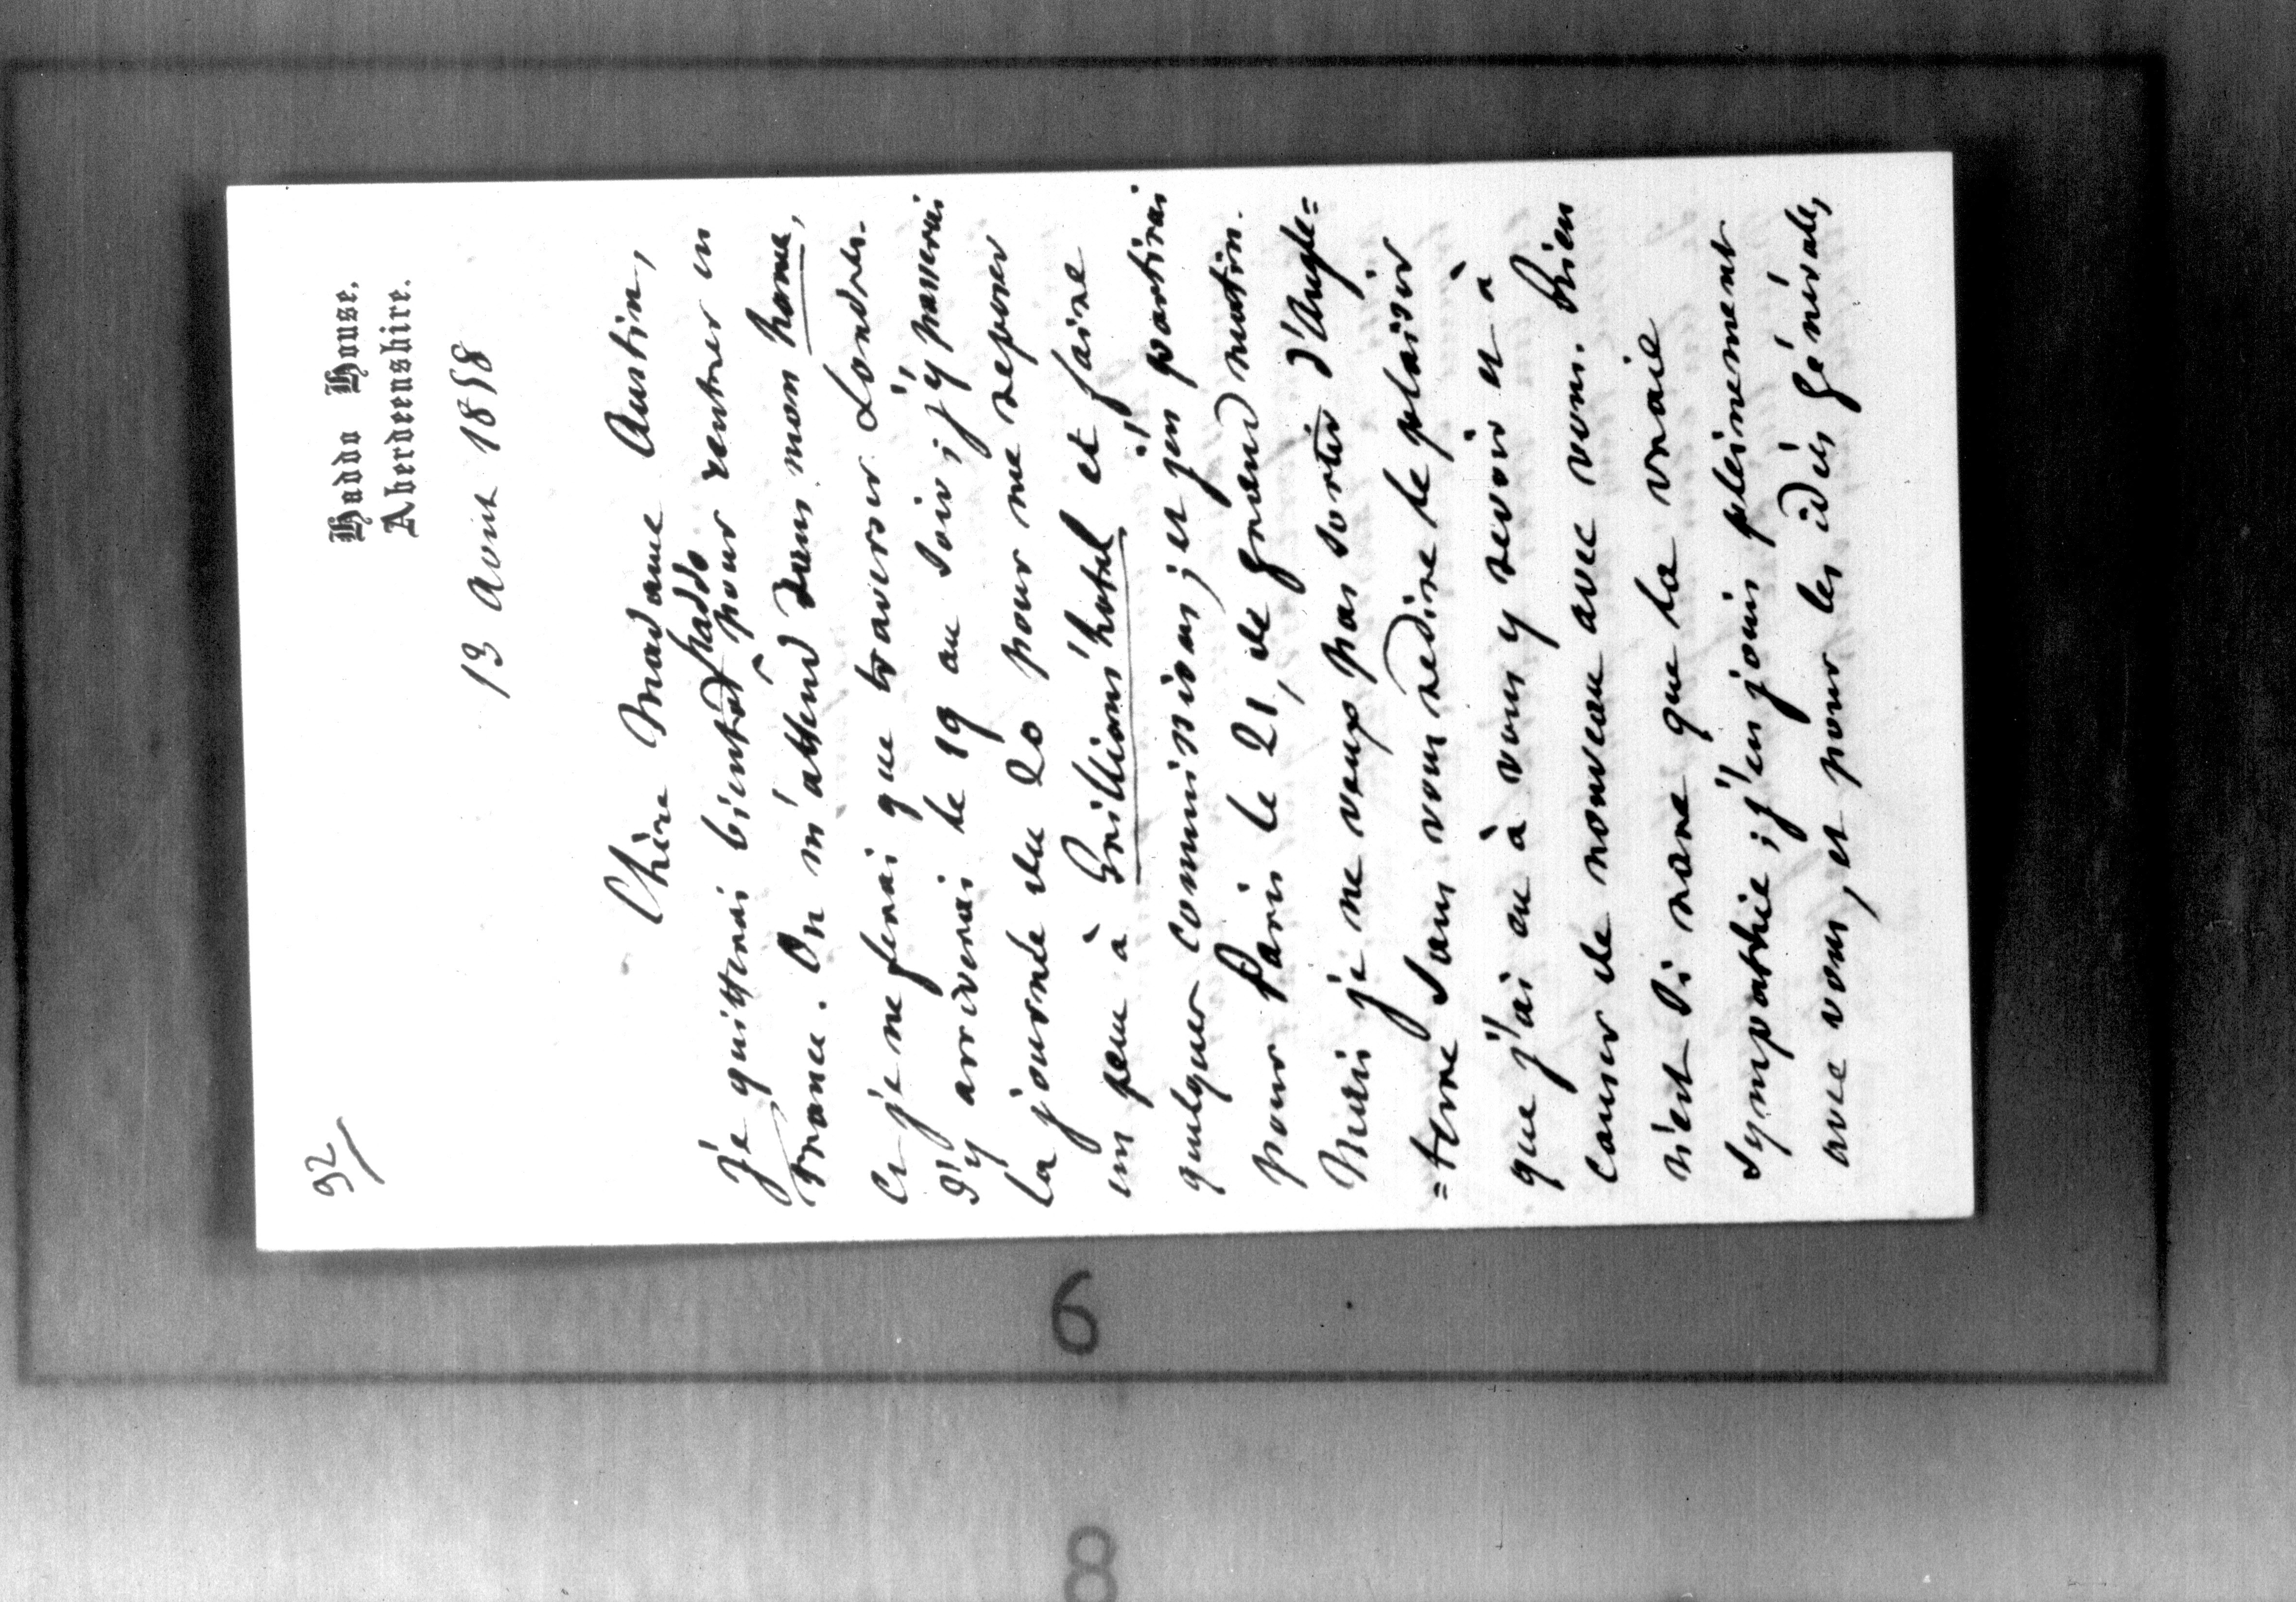 92/
Haddo House,
Aberdeenshire.
13 Août 1858
Chère Madame Austin,
Je quitterai bientôt haddo pour rentrer en
France. On m'attend dans mon home,
et je ne ferai que traverser Londres.
J'y arriverai le 19 au soir ; j'y passerai
la journée du 20 pour me reposer
un peu à Grillions' hotel et faire
quelques commissions ; et j'en partirai
pour Paris le 21, de grand matin.
Mais je ne veux pas sortir d'Angle=
=terre sans vous redire le plaisir
que j'ai eu à vous y revoir et à
causer de nouveau avec vous. Rien
n'est si rare que la vraie
sympathie ; j'en jouis pleinement
avec vous, et pour les idées générales,
6
8